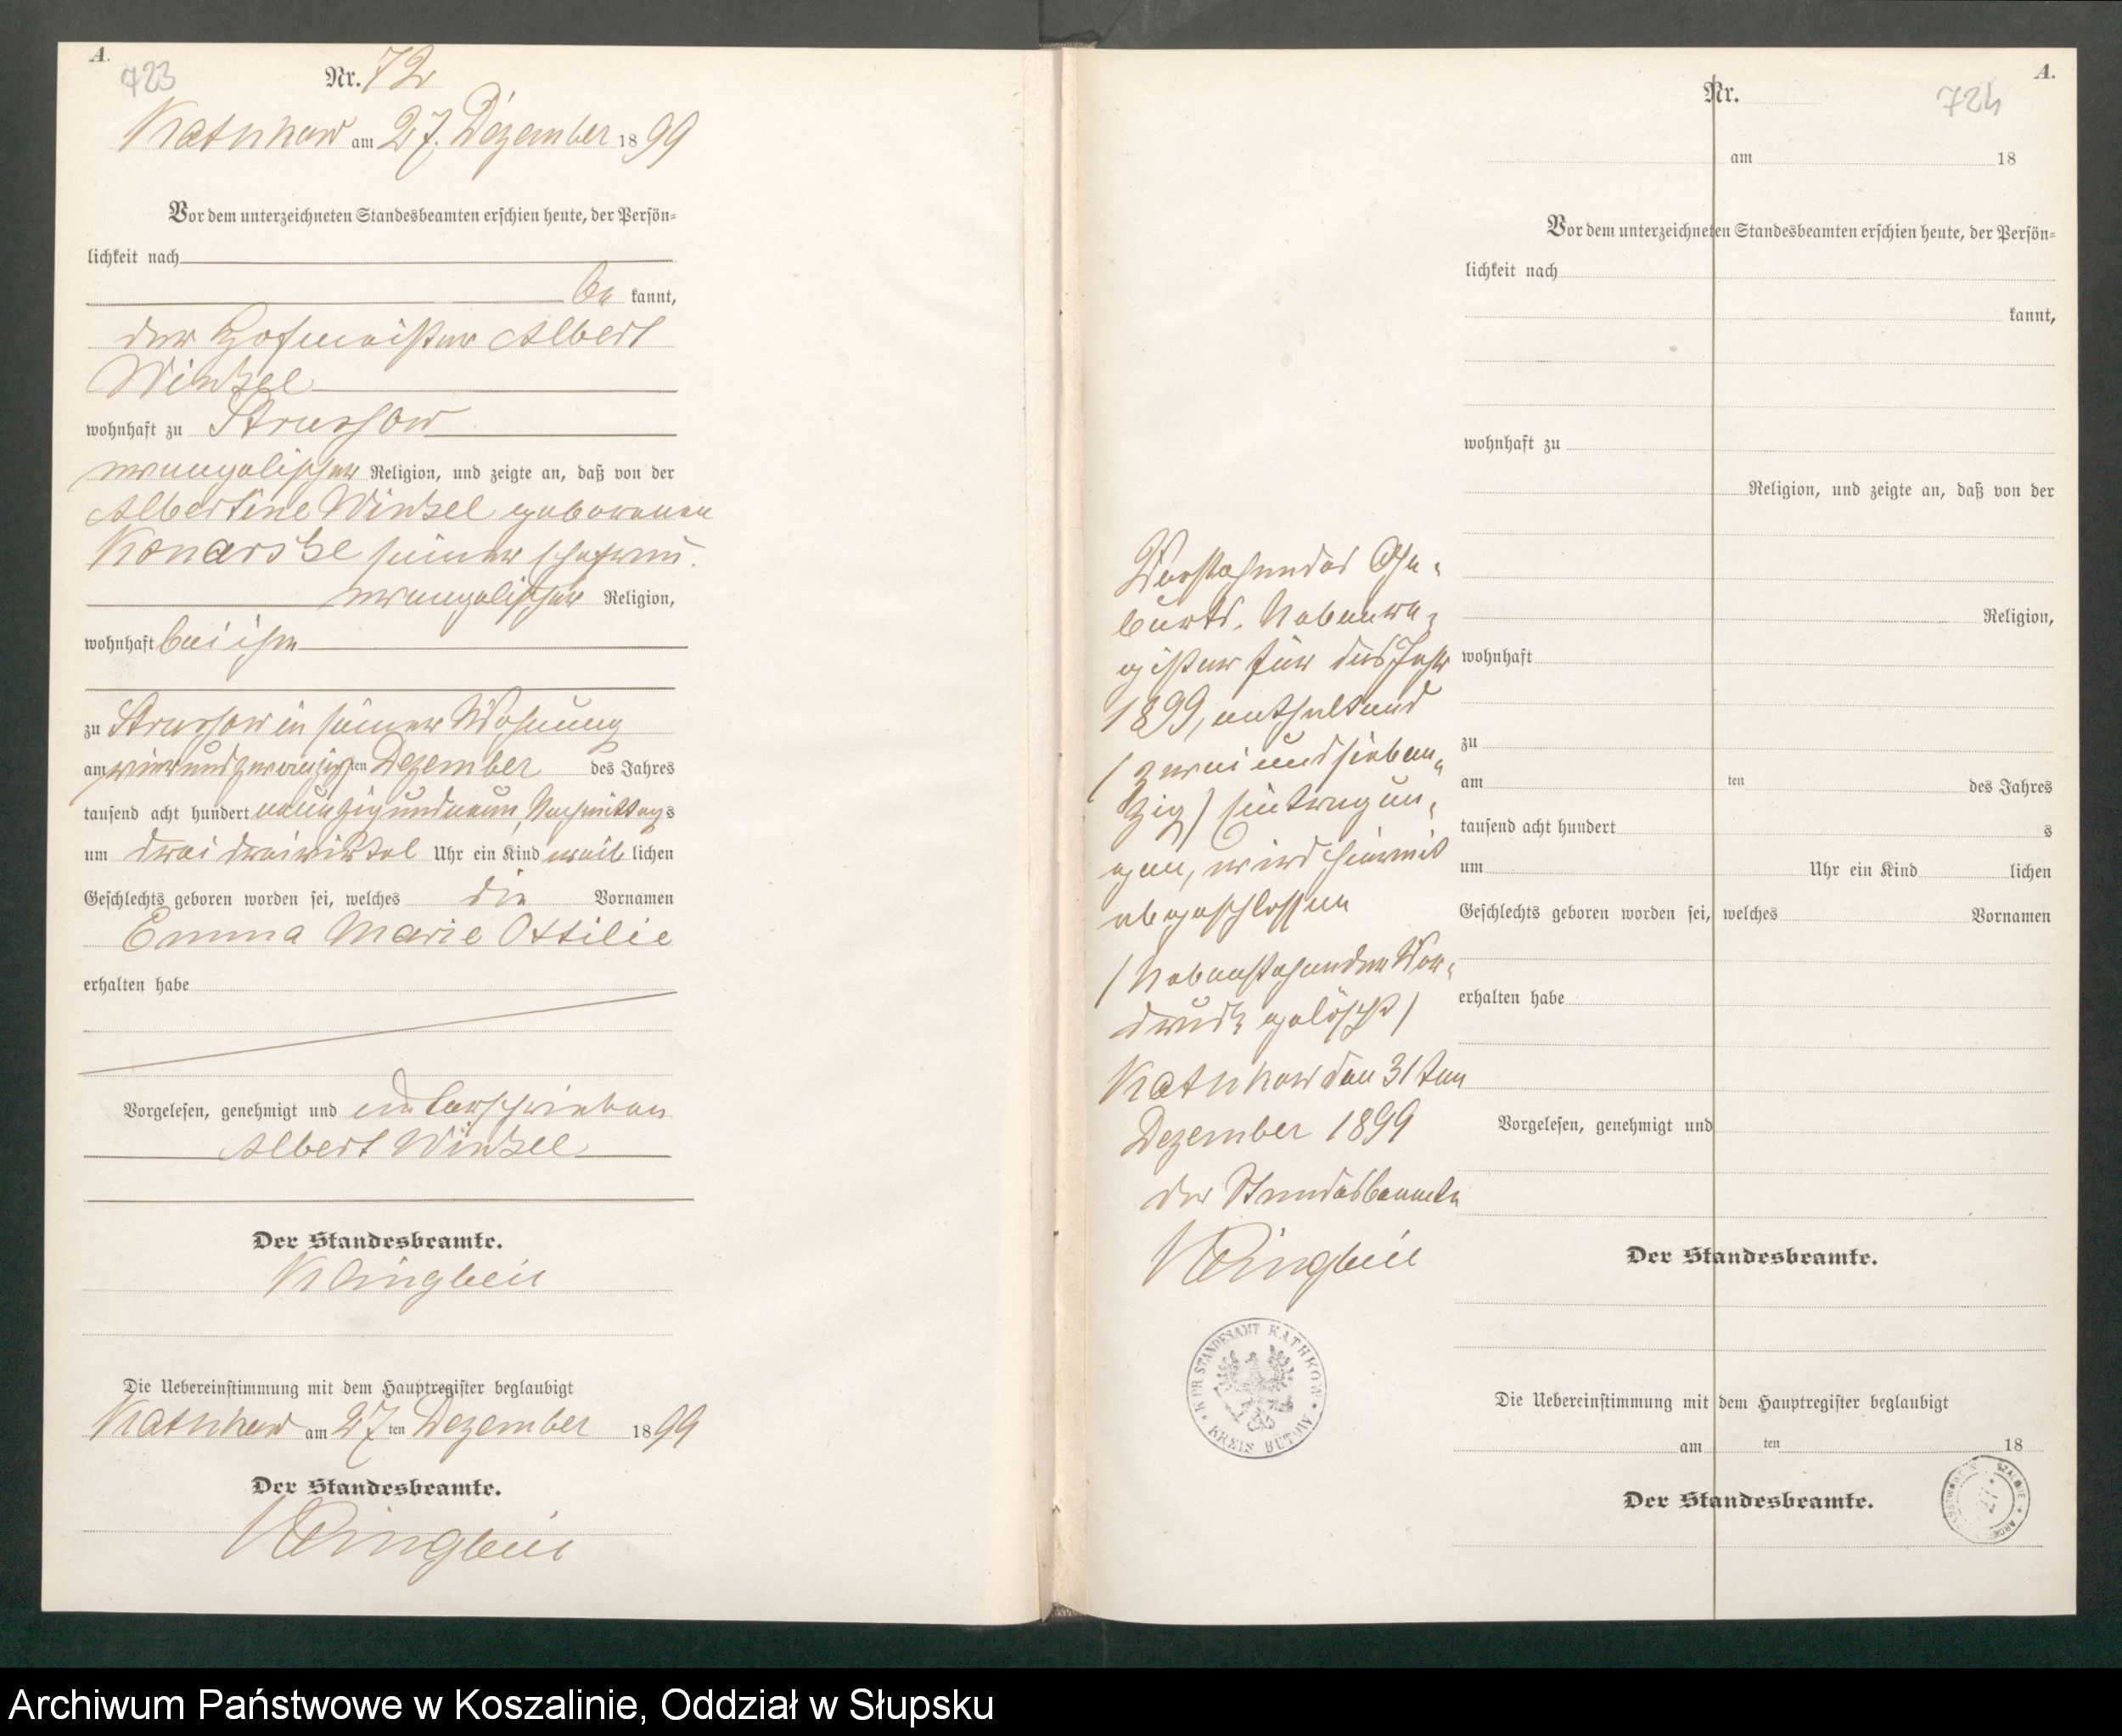 A.
723
Nr. 72
Kathkow am 27. Dezember 1899
Vor dem unterzeichneten Standesbeamten erschien heute, der Persön-
lichkeit nach
be kannt,
der Hofmeister Albert
Winkel
wohnhaft zu Strussow
evangelischer Religion, und zeigte an, daß von der
Albertine Winkel geborenen
Konarske seiner Ehefrau
evangelischer Religion,
wohnhaft bei ihm
zu Strussow in seiner Wohnung
am vierundzwanzigsten Dezember des Jahres
tausend acht hundert neunzig und neun, Nachmittags
um drei dreiviertel Uhr ein Kind weib lichen
Geschlechts geboren worden sei, welches die Vornamen
Emma Marie Ottilie
erhalten habe
Vorgelesen, genehmigt und unterschrieben
Albert Winkel
Der Standesbeamte.
Klingbeil
Die Uebereinstimmung mit dem Hauptregister beglaubigt
Kathkow am 27 ten Dezember 1899
Der Standesbeamte.
Klingbeil
A.
724
Nr.
am 18
Vor dem unterzeichneten Standesbeamten erschien heute, der Persön-
lichkeit nach
kannt,
wohnhaft zu
Religion, und zeigte an, daß von der
Religion,
wohnhaft
zu
am ten des Jahres
tausend acht hundert s
um Uhr ein Kind lichen
Geschlechts geboren worden sei, welches Vornamen
erhalten habe
Vorgelesen, genehmigt und
Der Standesbeamte.
Die Uebereinstimmung mit dem Hauptregister beglaubigt
am ten 18
Der Standesbeamte.
Vorstehendes Ge-
burts-Nebenre-
gister für das Jahr
1899, enthaltend
(zwei und sieben-
zig) Eintragun-
gen, wird hiermit
abgeschlossen
(Nebenstehender Vor-
druck gelöscht)
Kathkow den 31 ten
Dezember 1899
der Standesbeamte
Klingbeil
K. PR. STANDESAMT KATHKOW
KREIS BÜTOW
Archiwum Państwowe w Koszalinie, Oddział w Słupsku